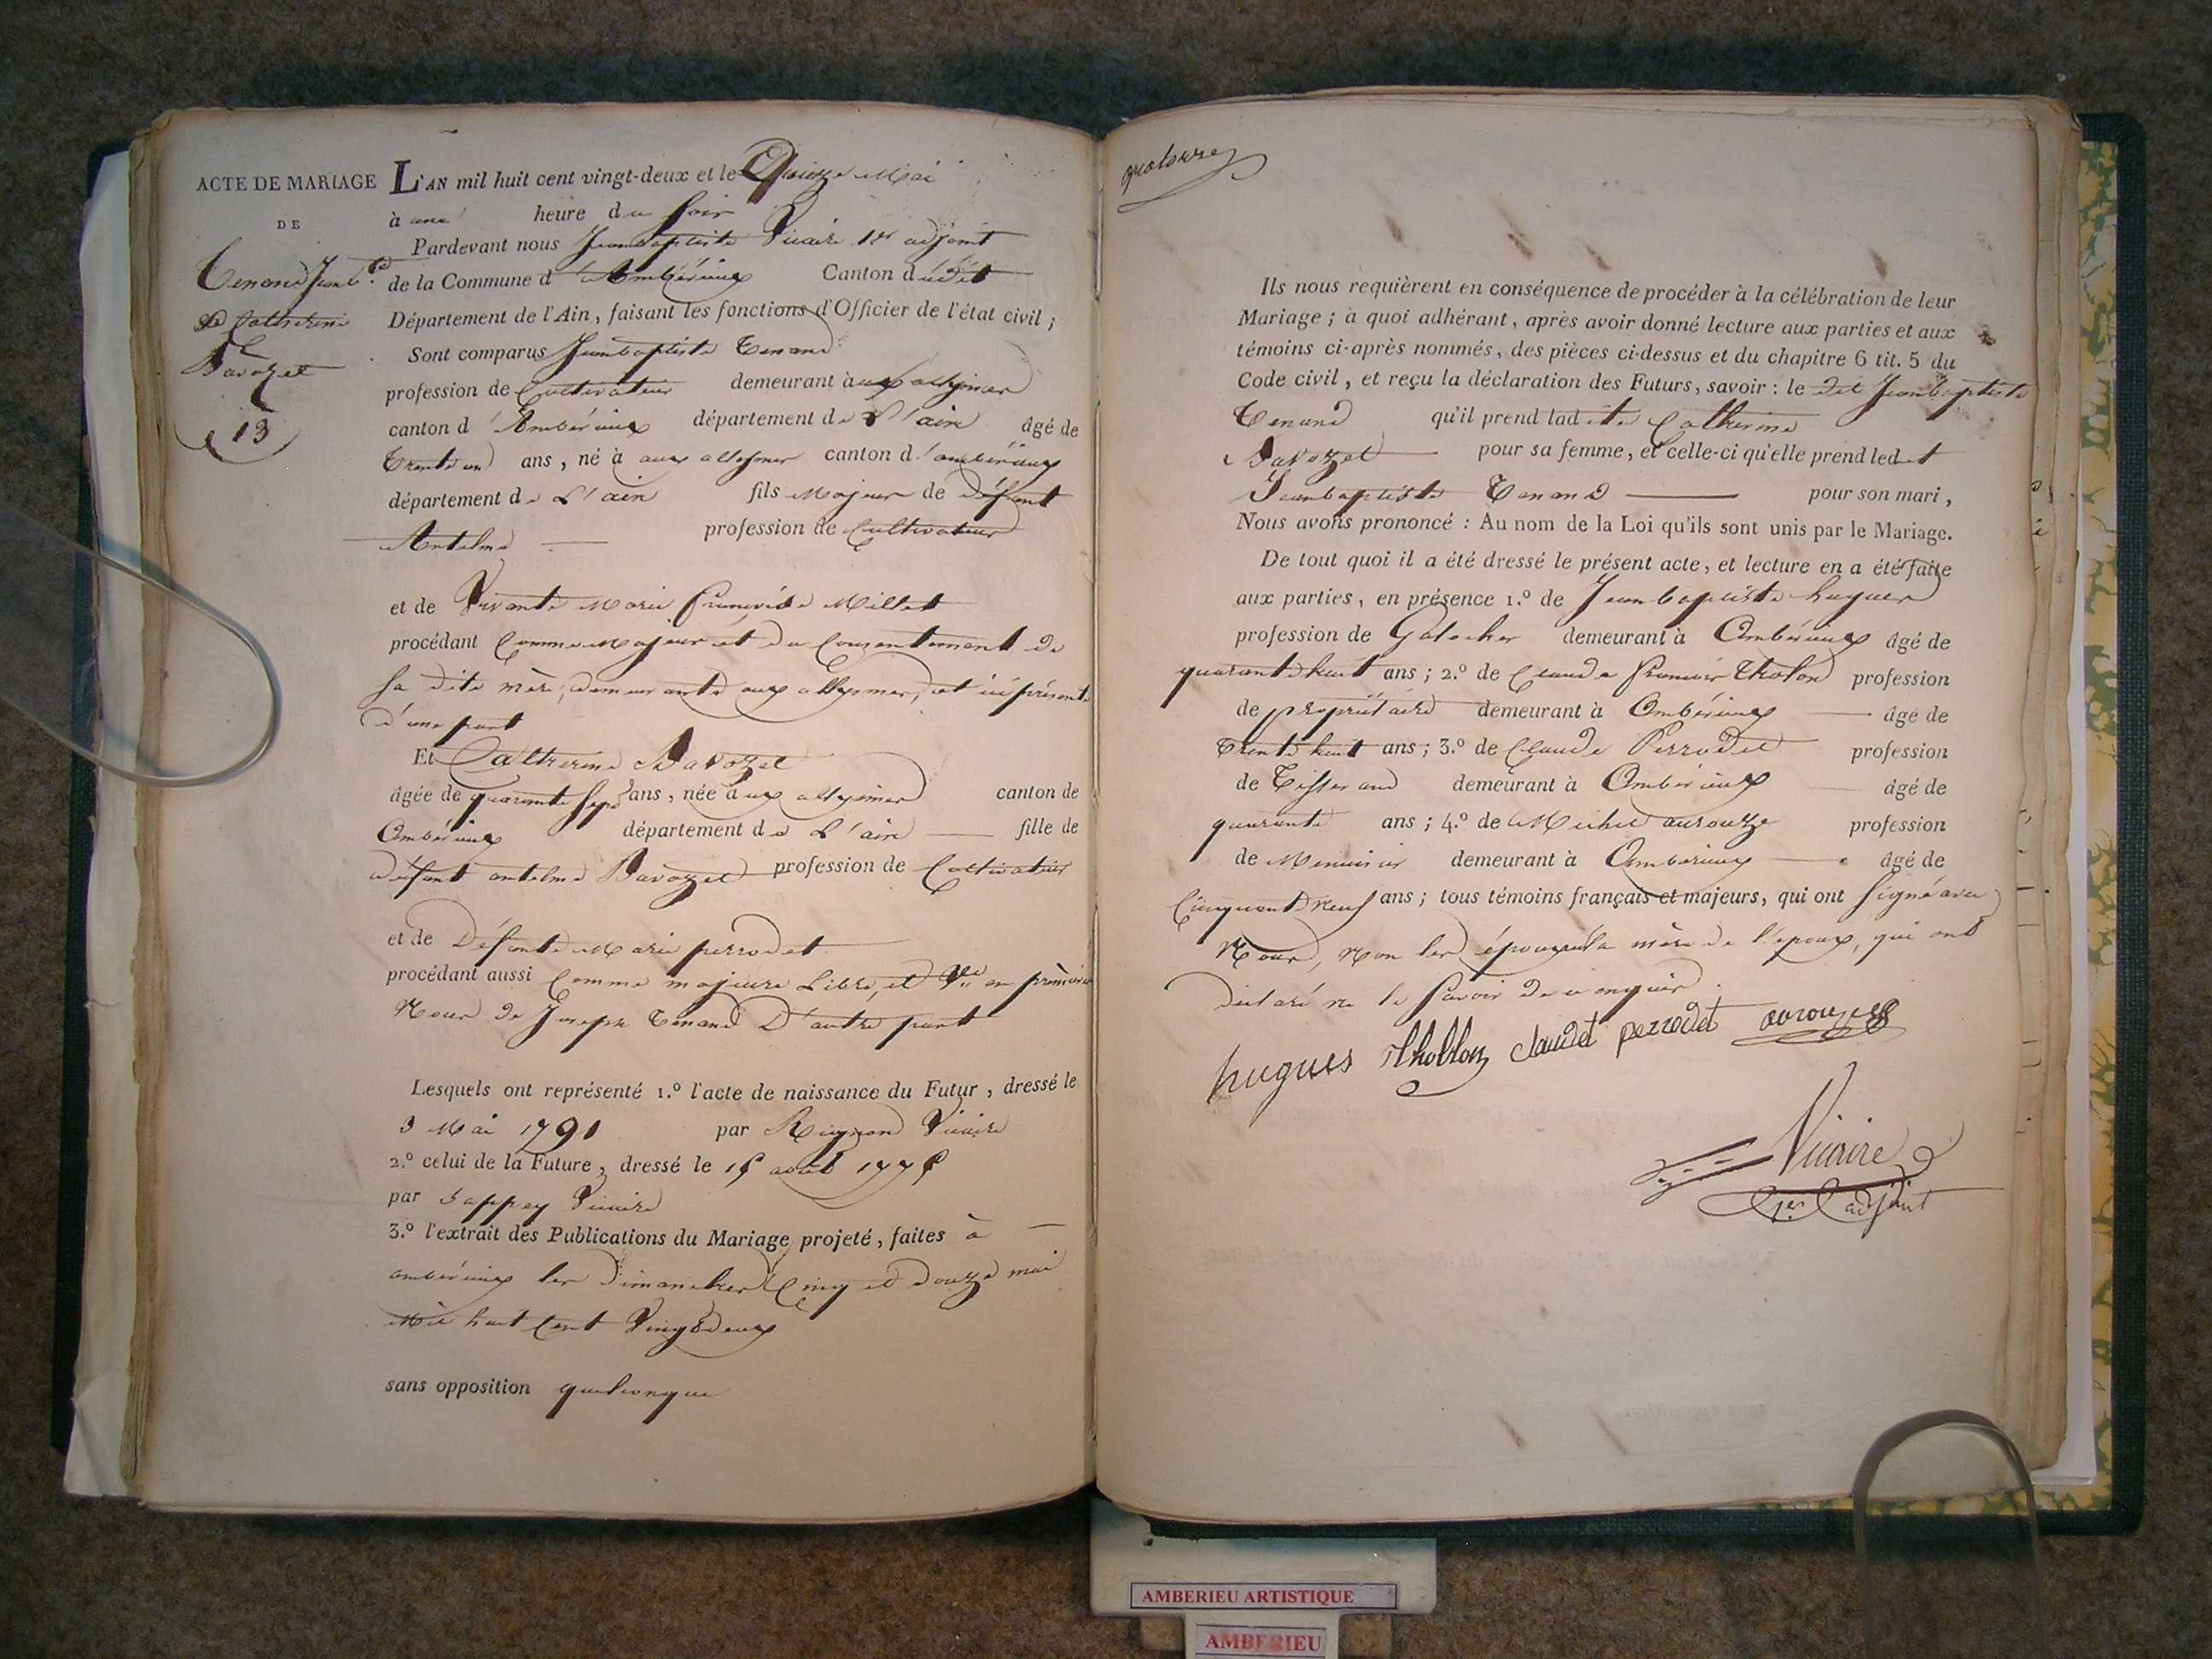 ACTE DE MARIAGE
DE
Tenand Jean Bte
et Catherine
Bavozet
13
L'AN mil huit cent vingt-deux et le Quinze Mai
à une heure du soir
Pardevant nous Jeanbaptiste Vicaire 1er adjoint
de la Commune d'Ambérieux Canton dudit
Département de l'Ain, faisant les fonctions d'Officier de l'état civil;
Sont comparus Jeanbaptiste Tenand
profession de Cultivateur demeurant aux allymes
canton d'Ambérieux département de L'ain âgé de
Trente un ans, né à aux allymes canton d'ambérieux
département de L'ain fils Majeur de défunt
Antelme profession de Cultivateur
et de Vivante Marie françoise Millet
procédant Comme Majeur et du Consentement de
sa dite mère, demeurante aux allymes, et ici présente
d'une part
Et Catherine Bavozet
âgée de quarante sept ans, née aux allymes canton de
Ambérieux département de L'ain fille de
défunt antelme Bavozet profession de Cultivateur
et de Défunte Marie perrodet
procédant aussi Comme majeure Libre, et Ve en premières
Noces de Joseph Tenand D'autre part
Lesquels ont représenté 1.º l'acte de naissance du Futur, dressé le
3 Mai 1791 par Vicaire
2.º celui de la Future, dressé le 15 août 1775
par Sappey Vicaire
3.º l'extrait des Publications du Mariage projeté, faites à
ambérieux les Dimanches Cinq et Douze mai
Mil huit Cent Vingt Deux
sans opposition quelconque
quatorze
Ils nous requièrent en conséquence de procéder à la célébration de leur
Mariage; à quoi adhérant, après avoir donné lecture aux parties et aux
témoins ci-après nommés, des pièces ci-dessus et du chapitre 6 tit. 5 du
Code civil, et reçu la déclaration des Futurs, savoir: le dit Jeanbaptiste
Tenand qu'il prend ladite Catherine
Bavozet pour sa femme, et celle-ci qu'elle prend ledit
Jeanbaptiste Tenand pour son mari,
Nous avons prononcé: Au nom de la Loi qu'ils sont unis par le Mariage.
De tout quoi il a été dressé le présent acte, et lecture en a été faite
aux parties, en présence 1.º de Jeanbaptiste hugues
profession de Galocher demeurant à Ambérieux âgé de
quarante huit ans; 2.º de Claude françois Tholon profession
de propriétaire demeurant à Ambérieux âgé de
Trente huit ans; 3.º de Claude Perrodet profession
de Tisserand demeurant à Ambérieux âgé de
quarante ans; 4.º de Michel aurouze profession
de Menuisier demeurant à Ambérieux âgé de
Cinquante Neuf ans; tous témoins français et majeurs, qui ont signé avec
Nous, Non les époux ni la mère de l'époux, qui ont
déclaré ne le savoir de ce enquis.
hugues thollon claudet perrodet
Vicaire
1er adjoint
AMBERIEU ARTISTIQUE
AMBERIEU